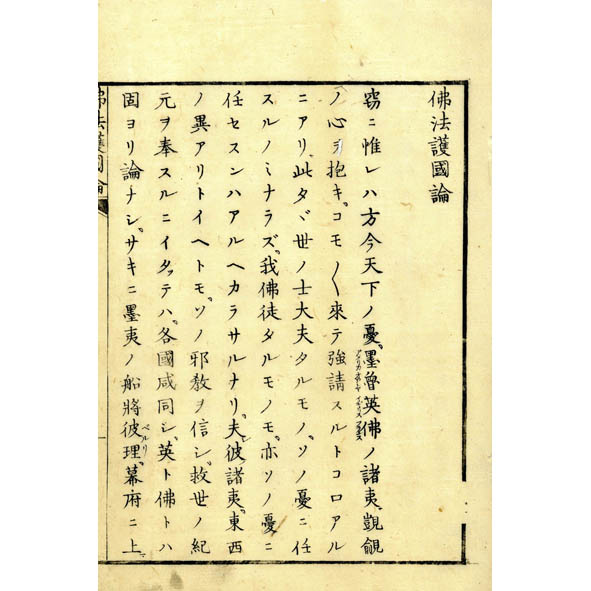 佛法護國論
窃ニ惟レハ方今天下ノ憂、墨魯英佛ノ諸夷、覬覦
ノ心ヲ抱キ、コモ〳〵來テ強請スルトコロアル
ニアリ、此タヾ世ノ士大夫タルモノ、ソノ憂ニ任
スルノミナラズ、我佛徒タルモノモ、亦ソノ憂ニ
任セスンハアルヘカラサルナリ、夫彼諸夷、東西
ノ異アリトイヘトモ、ソノ邪教ヲ信シ、救世ノ紀
元ヲ奉スルニイタツテハ、各國咸同シ、英ト佛トハ
固ヨリ論ナシ、サキニ墨夷ノ船將彼理、幕府ニ上
ベルリ
佛法護國論